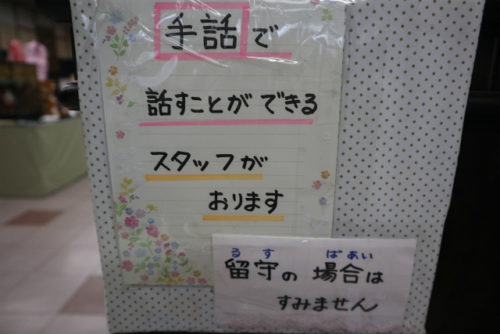 手話で
話すことができる
スタッフが
おります
るす ばあい
留守の 場合は
すみません